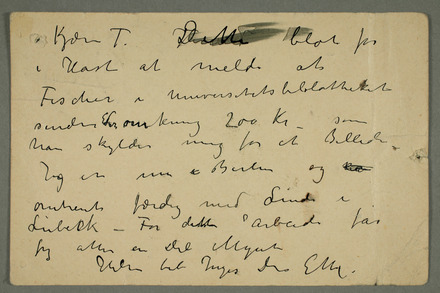 Kjære T. Dette blot for
i Hast at melde at
Fischer i universitetsbibliotheket
sender Dem omkring 200 Kr – som
han skylder mig for et Billede –
Jeg er nu i Berlin og
omtrent færdig med Linde i
Lübeck – For dette Arbeide får
jeg atter en Del Mynt